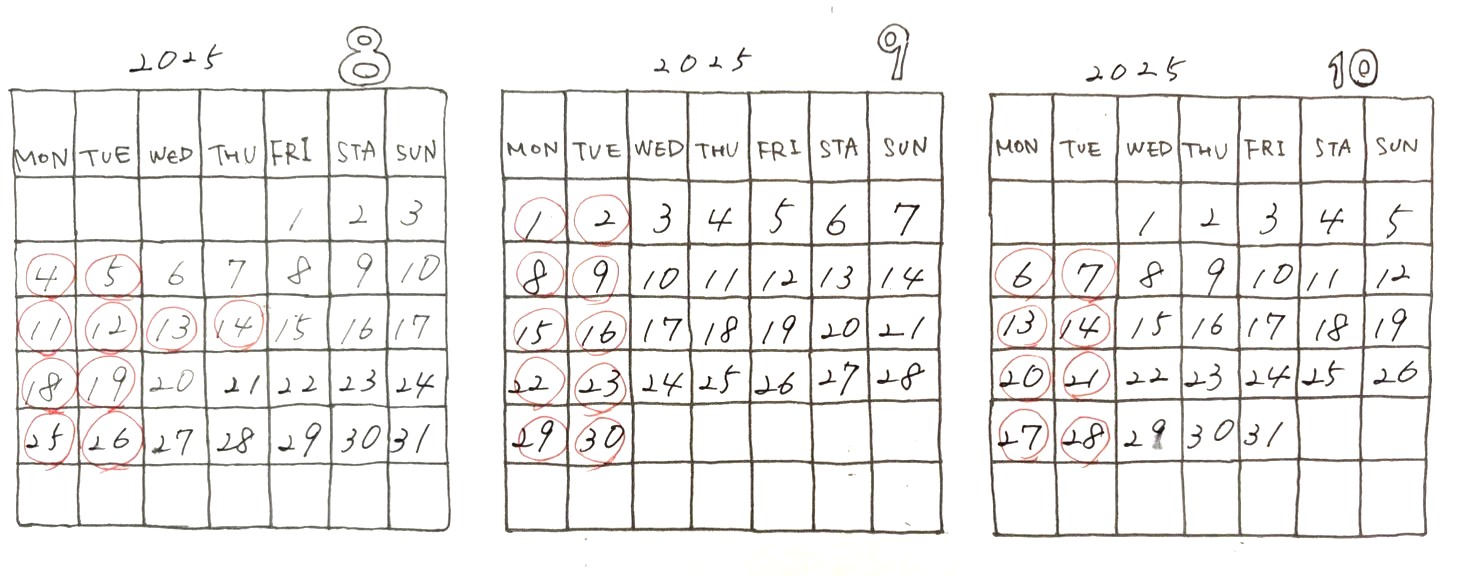 2025 8
MON TUE WED THU FRI STA SUN
1 2 3
4 5 6 7 8 9 10
11 12 13 14 15 16 17
18 19 20 21 22 23 24
25 26 27 28 29 30 31
2025 9
MON TUE WED THU FRI STA SUN
1 2 3 4 5 6 7
8 9 10 11 12 13 14
15 16 17 18 19 20 21
22 23 24 25 26 27 28
29 30
2025 10
MON TUE WED THU FRI STA SUN
1 2 3 4 5
6 7 8 9 10 11 12
13 14 15 16 17 18 19
20 21 22 23 24 25 26
27 28 29 30 31